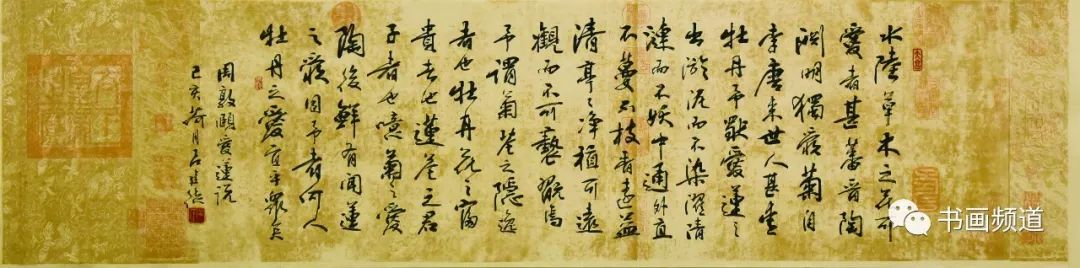 水陸草木之華可
愛者甚蕃晋陶
渊明獨愛菊自
李唐来世人甚愛
牡丹予獨愛蓮之
出淤泥而不染濯清
漣而不妖中通外直
不蔓不枝香遠益
清亭々净植可遠
觀而不可褻翫焉
予謂菊花之隱逸
者也牡丹花之富
貴者也蓮花之君
子者也噫菊之愛
陶後鮮有聞蓮
之愛同予者何人
牡丹之愛宜乎衆矣
周敦頤愛蓮説
己亥荷月
书画频道